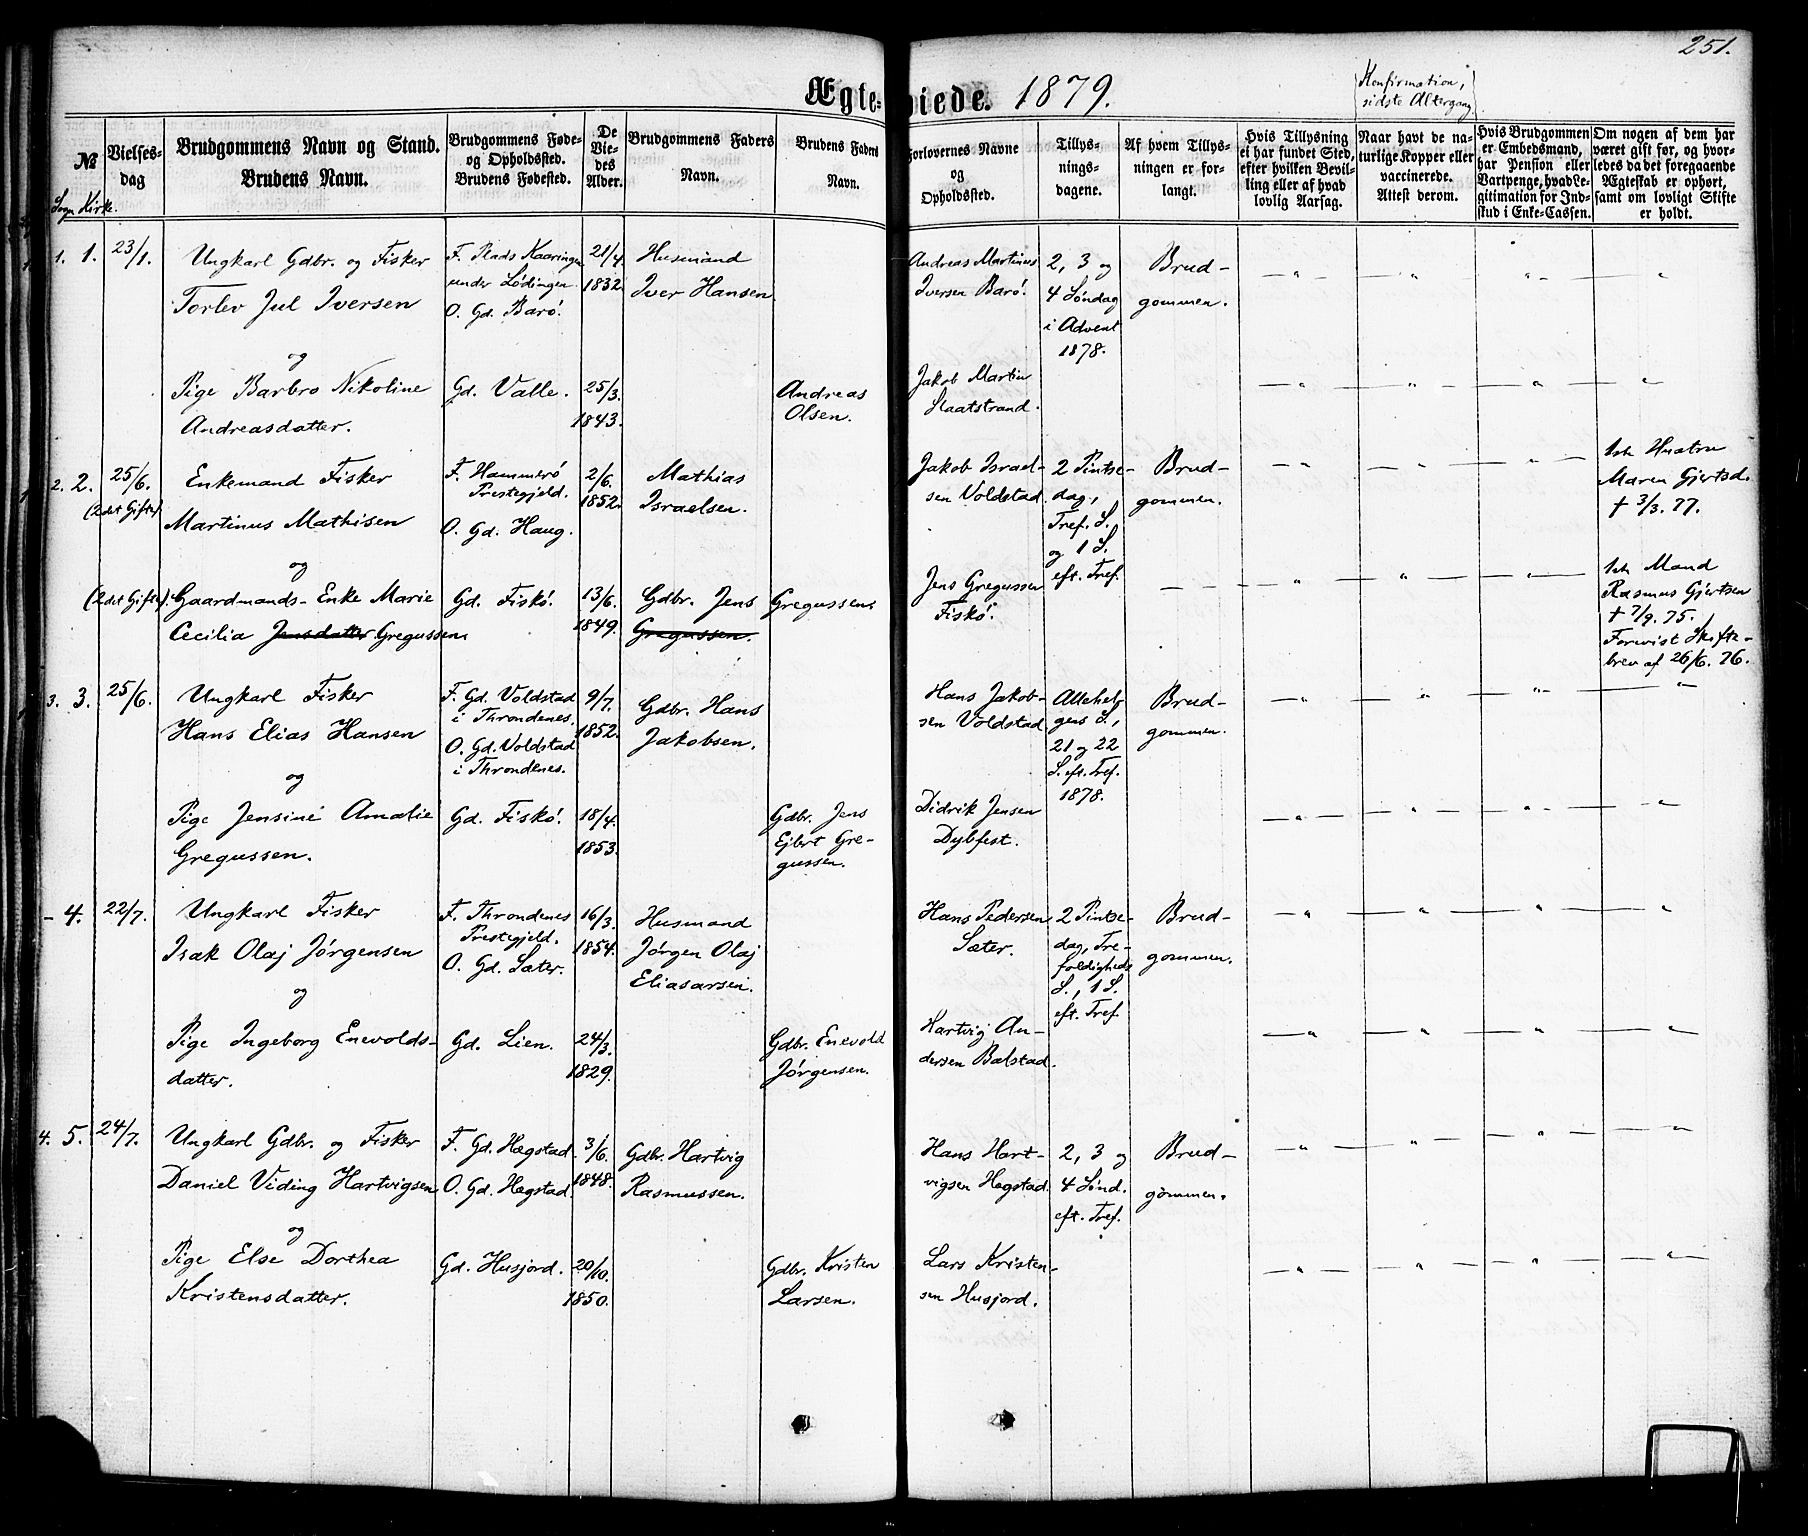 251.
Ægte- viede. 1879.
Konfirmation,
sidste Altergang
№
Sogn Kirke.
Vielses-
dag
Brudgommens Navn og Stand.
Brudens Navn.
Brudgommens Føde-
og Opholdssted.
Brudens Fødested.
De
Vie-
des
Alder.
Brudgommens Faders
Navn.
Brudens Faders
Navn.
Forlovernes Navne
og
Opholdssted.
Tillys-
nings-
dagene.
Af hvem Tillys-
ningen er for-
langt.
Hvis Tillysning
ei har fundet Sted,
efter hvilken Bevil-
ling eller af hvad
lovlig Aarsag.
Naar havt de na-
turlige Kopper eller
vaccinerede.
Attest derom.
Hvis Brudgommen
er Embedsmand,
har Pension eller
Vartpenge, hvad Le-
gitimation for Ind-
skud i Enke-Cassen.
Om nogen af dem har
været gift før, og hvor-
ledes da det foregaaende
Ægteskab er ophørt,
samt om lovligt Skifte
er holdt.
1. 1.
23/1.
Ungkarl Gdbr. og Fisker
Torlev Jul Iversen
F. Plads Kaaringen
under Lødingen.
O. Gd. Barø.
21/4
1832.
Husmand
Iver Hansen
Andreas Martinus
Iversen Barø.
2, 3 og
4 Søndag
i Advent
1878.
Brud-
gommen.
og
Pige Barbro Nikoline
Andreasdatter.
Gd. Valle.
25/3.
1843.
Andreas
Olsen.
Jakob Martin
Slaatstrand.
2. 2.
25/6.
(2det Gifte)
Enkemand Fisker
Martinus Mathisen
F. Hammerø
Prestegjeld.
O. Gd. Haug.
2/6.
1852.
Mathias
Israelsen.
Jakob Israel-
sen Voldstad
2 Pintse-
dag,
Tref. S.
og 1 S.
eft. Tref.
Brud-
gommen.
1ste Hustru
Maren Gjertsd.
† 3/3. 77.
og
(2det Gifte).
Gaardmands-Enke Marie
Cecilia Jensdatter Gregussen.
Gd. Fiskø.
13/6.
1849.
Gdbr. Jens Gregussen.
Gregussen.
Jens Gregussen
Fiskø.
1ste Mand
Rasmus Gjertsen
† 7/9. 75.
Forevist Skifte-
brev af 26/6. 76.
3. 3.
25/6.
Ungkarl Fisker
Hans Elias Hansen
F. Gd. Voldstad
i Throndenes.
O. Gd. Voldstad
i Throndenes.
9/7.
1852.
Gdbr. Hans
Jakobsen.
Hans Jakob-
sen Voldstad
Allehel-
gens S.,
21 og 22
S. eft. Tref.
1878.
Brud-
gommen.
og
Pige Jensine Amalie
Gregussen.
Gd. Fiskø.
18/4.
1853.
Gdbr. Jens
Ejbert Gre-
gussen.
Didrik Jensen
Dybfest.
- 4.
22/7.
Ungkarl Fisker
Isak Olaj Jørgensen
F. Throndenes
Prestegjeld.
O. Gd. Sæter.
16/3.
1854.
Husmand
Jørgen Olaj
Eliasarsen.
Hans Pedersen
Sæter.
2 Pintse-
dag, Tre-
foldigheds
S., 1 S.
eft. Tref.
Brud-
gommen.
og
Pige Ingeborg Enevolds-
datter.
Gd. Lien.
24/3.
1829.
Gdbr. Enevold
Jørgensen.
Hartvig An-
dersen Balstad.
4. 5.
24/7.
Ungkarl Gdbr. og Fisker
Daniel Viding Hartvigsen
F. Gd. Hægstad.
O. Gd. Hægstad.
3/6.
1848.
Gdbr. Hartvig
Rasmussen.
Hans Hart-
vigsen Hægstad.
2, 3 og
4 Sønd.
eft. Tref.
Brud-
gommen.
og
Pige Else Dorthea
Kristensdatter.
Gd. Husjord.
20/10.
1850.
Gdbr. Kristen
Larsen.
Lars Kristen-
sen Husjord.